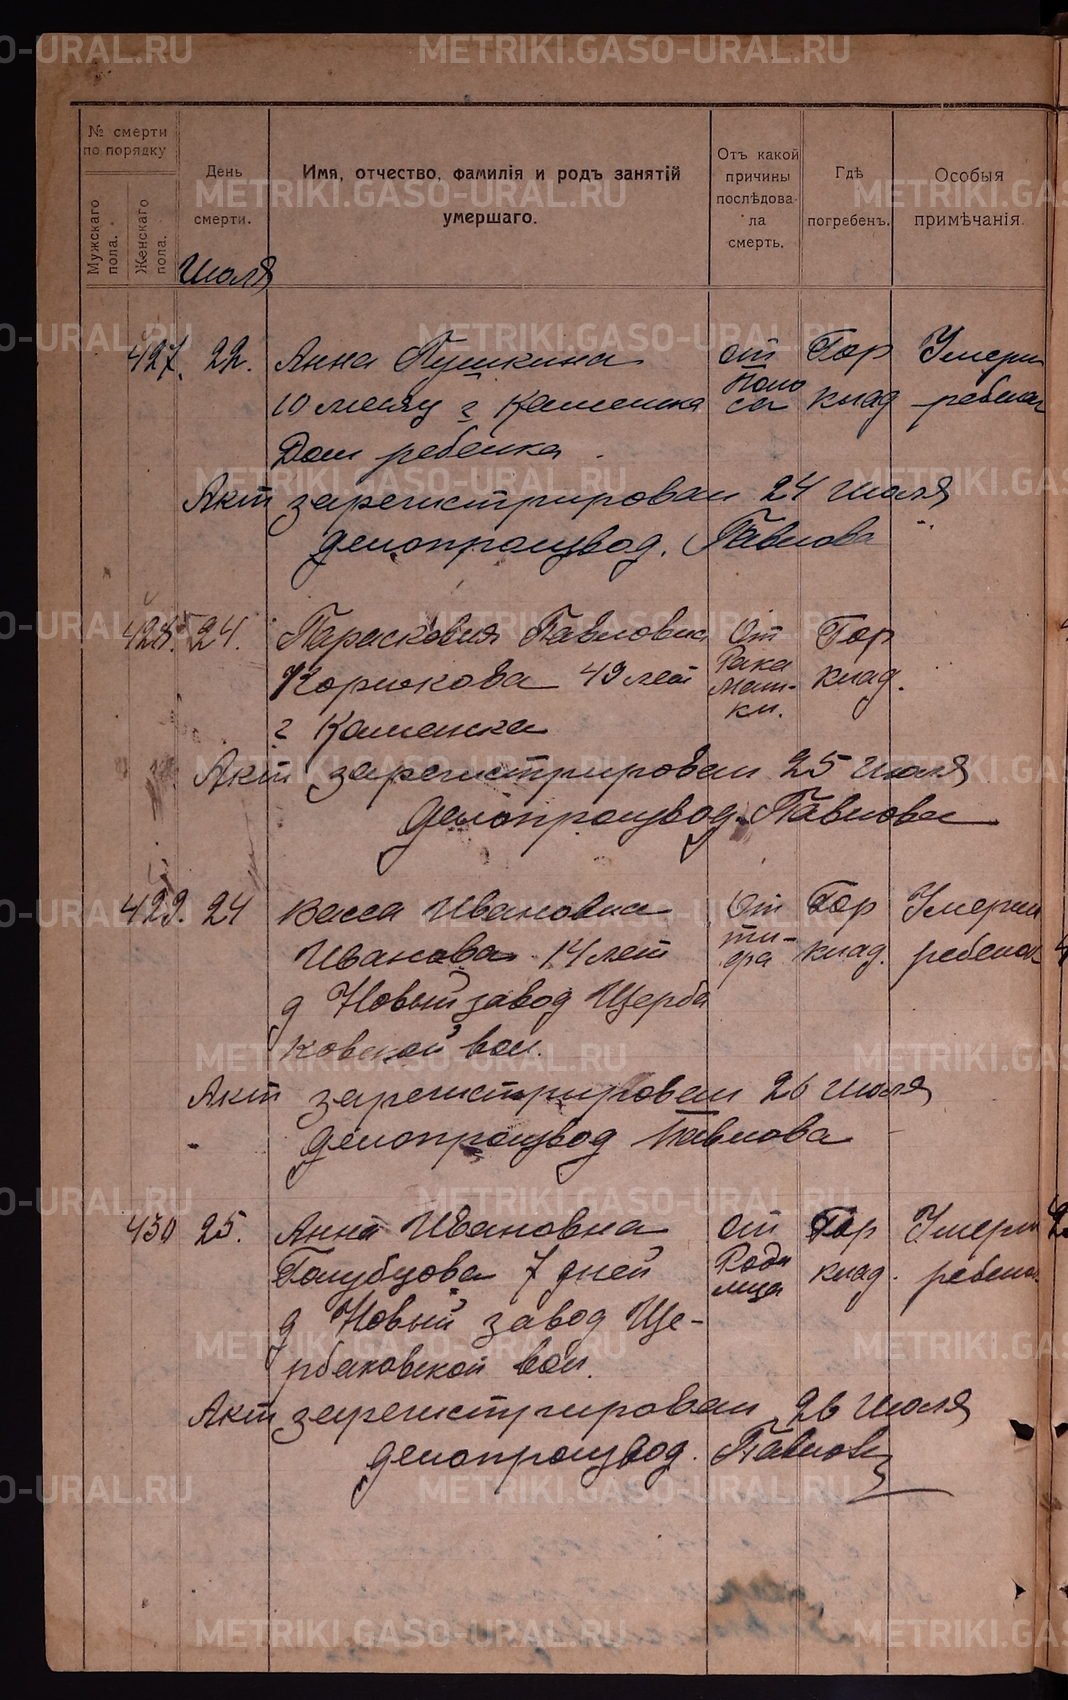 № смерти
по порядку
Мужскаго
пола.
Женскаго
пола.
День
смерти.
Имя, отчество, фамилія и родъ занятій
умершаго.
Отъ какой
причины
послѣдова-
ла
смерть.
Гдѣ
погребенъ.
Особыя
примѣчанія.
Июля
427. 22. Анна Пушкина от Гор Умерш
10 месяц г Каменска Поно са клад ребенок
Дом ребенка
Акт зарегистрирован 24 июля
делопроизвод. Павлова
428. 24. Парасковия Павловна От Гор
Коржкова 49 лет Рака клад.
г Каменска Мат-
ки.
Акт зарегистрирован 25 июля
делопроизвод. Павлова
429. 24 Васса Ивановна От Гор Умерш
Иванова 14 лет ти-фа клад. ребенок
д Новый завод Щерба
ковской вол.
Акт зарегистрирован 26 июля
делопроизвод Павлова
430 25. Анна Ивановна от Гор Умерш
Голубцова 7 дней Роди клад. ребенок
мца
д Новый завод Ще-
рбаковской вол.
Акт зарегистрирован 26 июля
делопроизвод. Павлова
METRIKI.GASO-URAL.RU